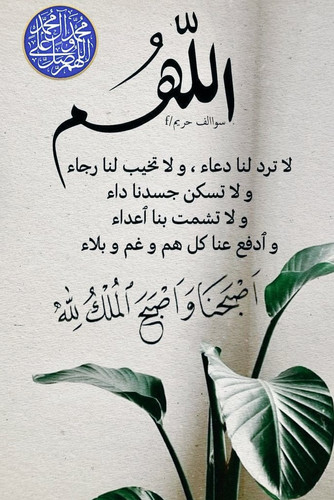 اللهم صل على محمد وآل محمد
اللّهُم
سواالف حريم/٤
لا ترد لنا دعاء ، و لا تخيب لنا رجاء
و لا تسكن جسدنا داء
و لا تشمت بنا ٱعداء
و ٱدفع عنا كل هم و غم و بلاء
اَصْبَحْنَا وَ اَصْبَحَ ٱلمُلْكُ لِلّٰهِ